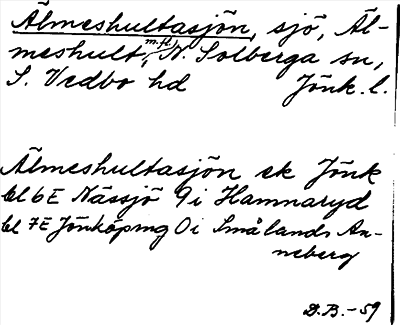 Älmeshultasjön, sjö, Äl-
meshult, m.fl. N. Solberga sn,
S. Vedbo hd Jönk. l.
Älmeshultasjön ek Jönk
bl 6E Nässjö 9i Hamnaryd
bl 7E Jönköping 0i Smålands An-
neberg
D.B. -59